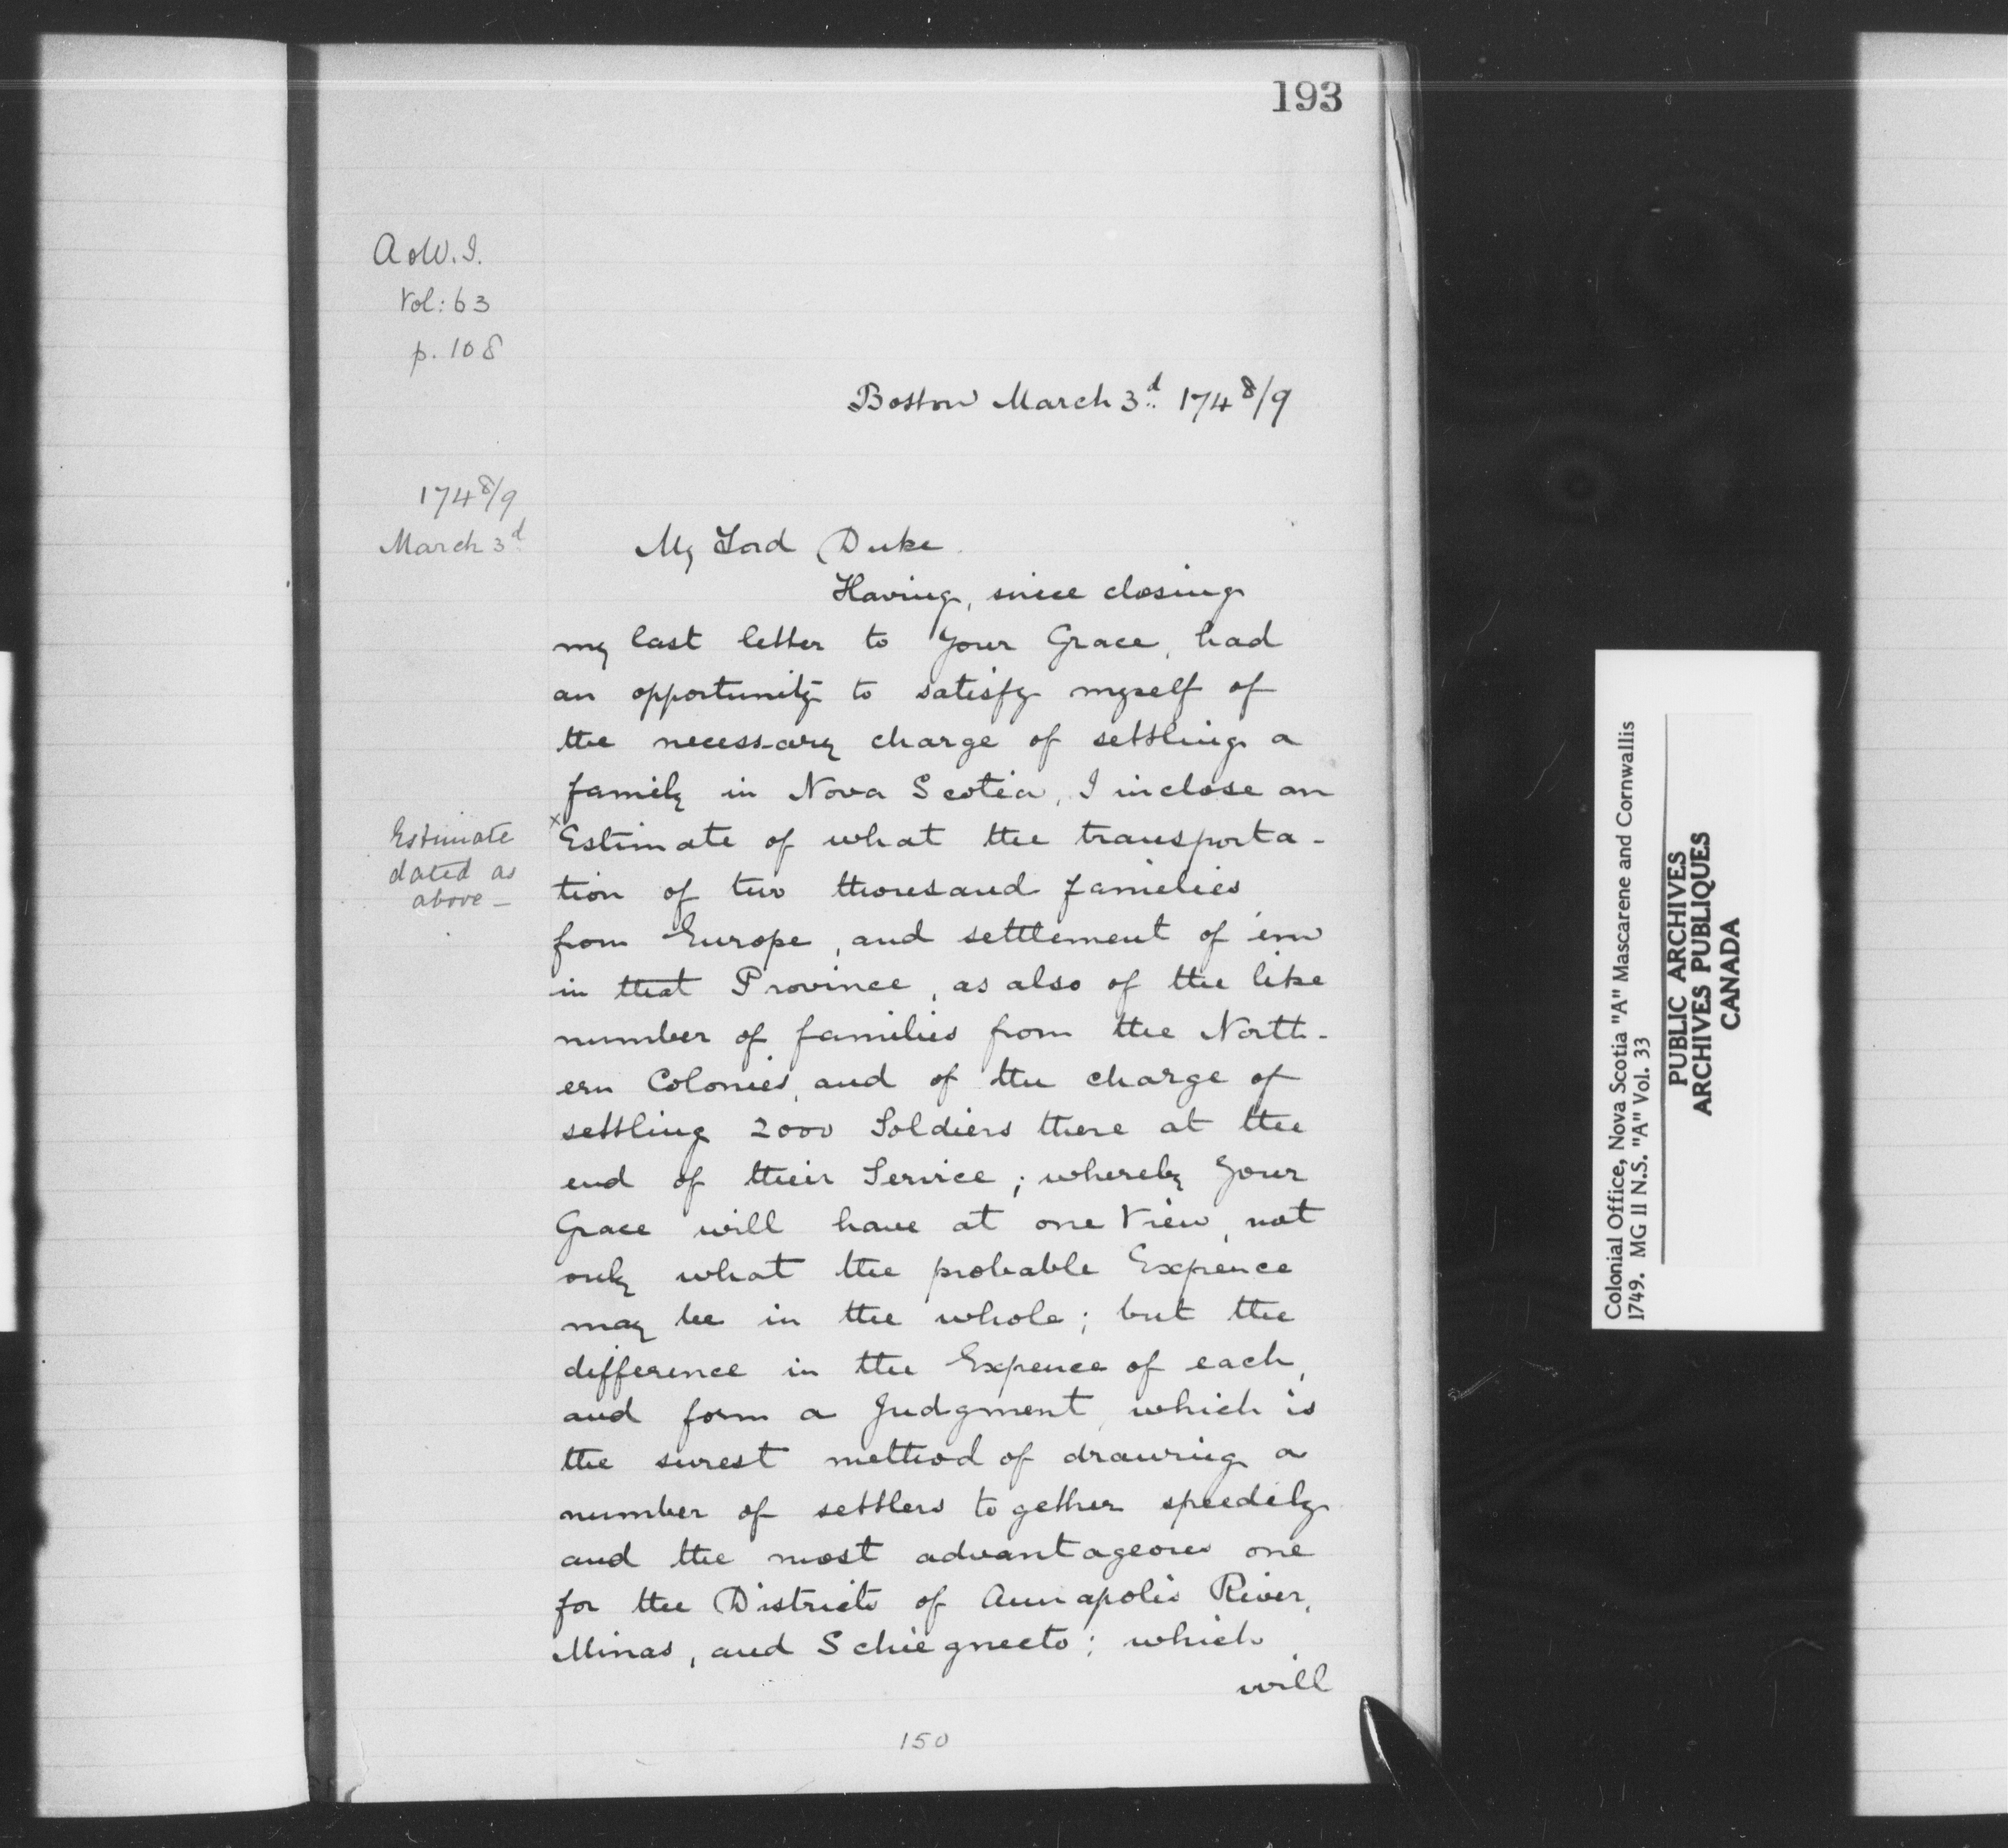 193
A & W. I.
Vol: 63
p. 108
Boston March 3.d 174 8/9
174 8/9
March 3d
My Lord Duke.
Having, since closing
my last letter to Your Grace, had
an opportunity to satisfy myself of
the necessary charge of settling a
family in Nova Scotia, I inclose an
Estimate
dated as
above —
x Estimate of what the transporta-
tion of two thousand families
from Europe, and settlement of 'em
in that Province, as also of the like
number of families from the North-
ern Colonies, and of the charge of
settling 2000 Soldiers there at the
end of their Service; whereby Your
Grace will have at one View, not
only what the probable Expence
may be in the whole; but the
difference in the Expence of each,
and form a Judgment, which is
the surest method of drawing a
number of settlers together speedily
and the most advantageous one
for the Districts of Annapolis River,
Minas, and Schiegnecto; which
will
150
Colonial Office, Nova Scotia "A" Mascarene and Cornwallis
1749. MG II N.S. "A" Vol. 33
PUBLIC ARCHIVES
ARCHIVES PUBLIQUES
CANADA